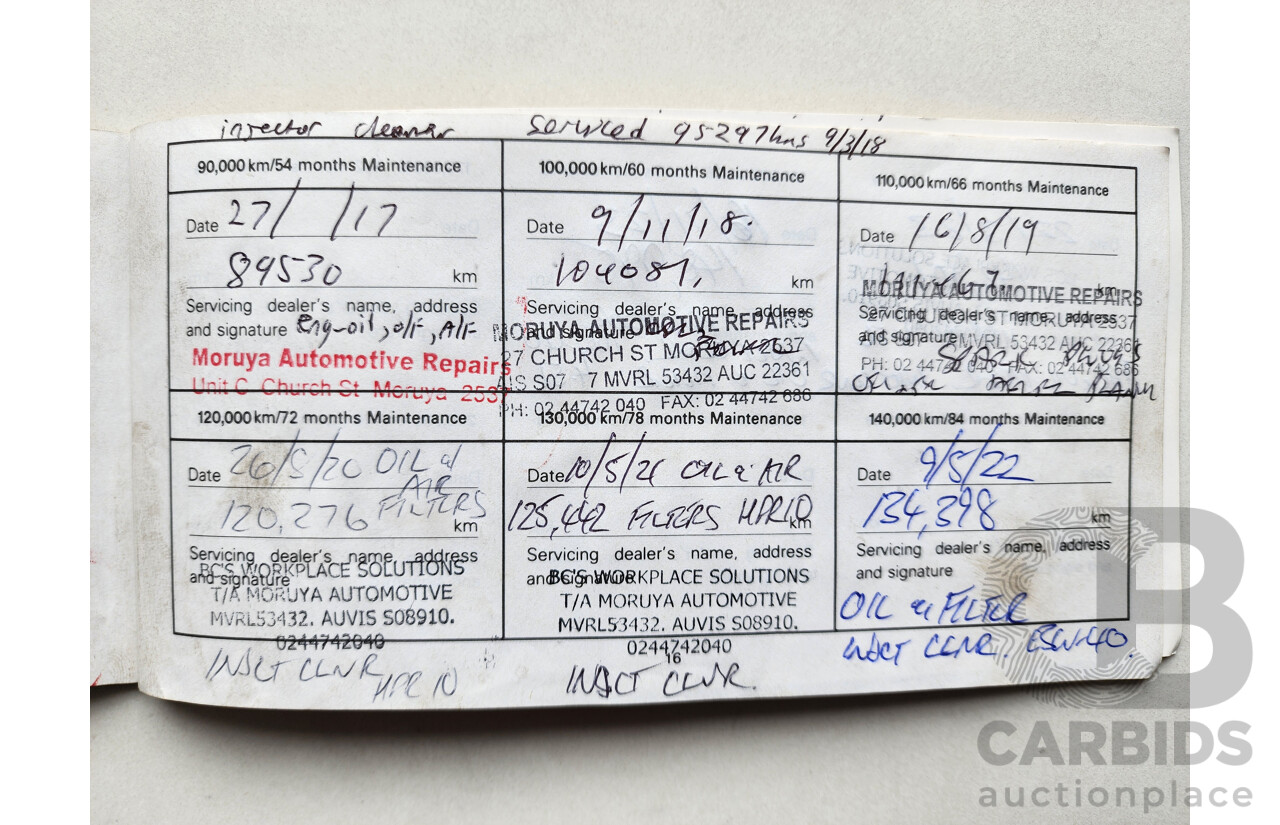 injector cleaner
Serviced 95297kms 9/3/18
90,000 km/54 months Maintenance
Date 27/ /17
89530 km
Servicing dealer's name, address
and signature eng-oil, o/F, A/F
Moruya Automotive Repairs
Unit C Church St Moruya 2537
100,000 km/60 months Maintenance
Date 9/11/18.
104081, km
Servicing dealer's name, address
and signature
MORUYA AUTOMOTIVE REPAIRS
27 CHURCH ST MORUYA 2537
AIS S07 7 MVRL 53432 AUC 22361
PH: 02 44742 040 FAX: 02 44742 686
110,000 km/66 months Maintenance
Date 16/8/19
km
MORUYA AUTOMOTIVE REPAIRS
Servicing dealer's name, address
27 CHURCH ST MORUYA 2537
and signature
MVRL 53432 AUC 22361
PH: 02 44742 040 FAX: 02 44742 686
SPARK PLUGS
120,000 km/72 months Maintenance
Date 26/5/20 OIL &
AIR
120,276 FILTERS
km
Servicing dealer's name, address
and signature
BC'S WORKPLACE SOLUTIONS
T/A MORUYA AUTOMOTIVE
MVRL53432. AUVIS S08910.
0244742040
INJCT CLNR
HPR 10
130,000 km/78 months Maintenance
Date 10/5/21 OIL & AIR
125,442 FILTERS HPR10
km
Servicing dealer's name, address
and signature
BC'S WORKPLACE SOLUTIONS
T/A MORUYA AUTOMOTIVE
MVRL53432. AUVIS S08910.
0244742040
16
INJCT CLNR.
140,000 km/84 months Maintenance
Date 9/5/22
134,398 km
Servicing dealer's name, address
and signature
OIL & FILTER
INJCT CLNR. 15W-40.
B
CARBIDS
auctionplace